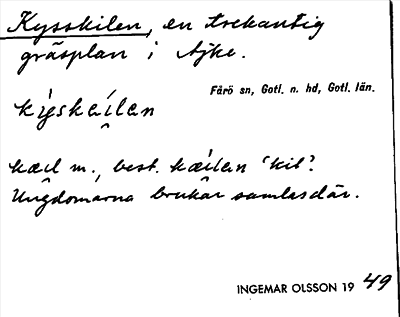 Kysskilen, en trekantig
gräsplan i Ajke.
Fårö sn, Gotl. n. hd, Gotl. län.
kẏskæ̂ilan
kæil m., best. kæ̂ilan 'kil'.
Ungdomarna brukar samlas där.
INGEMAR OLSSON 19 49